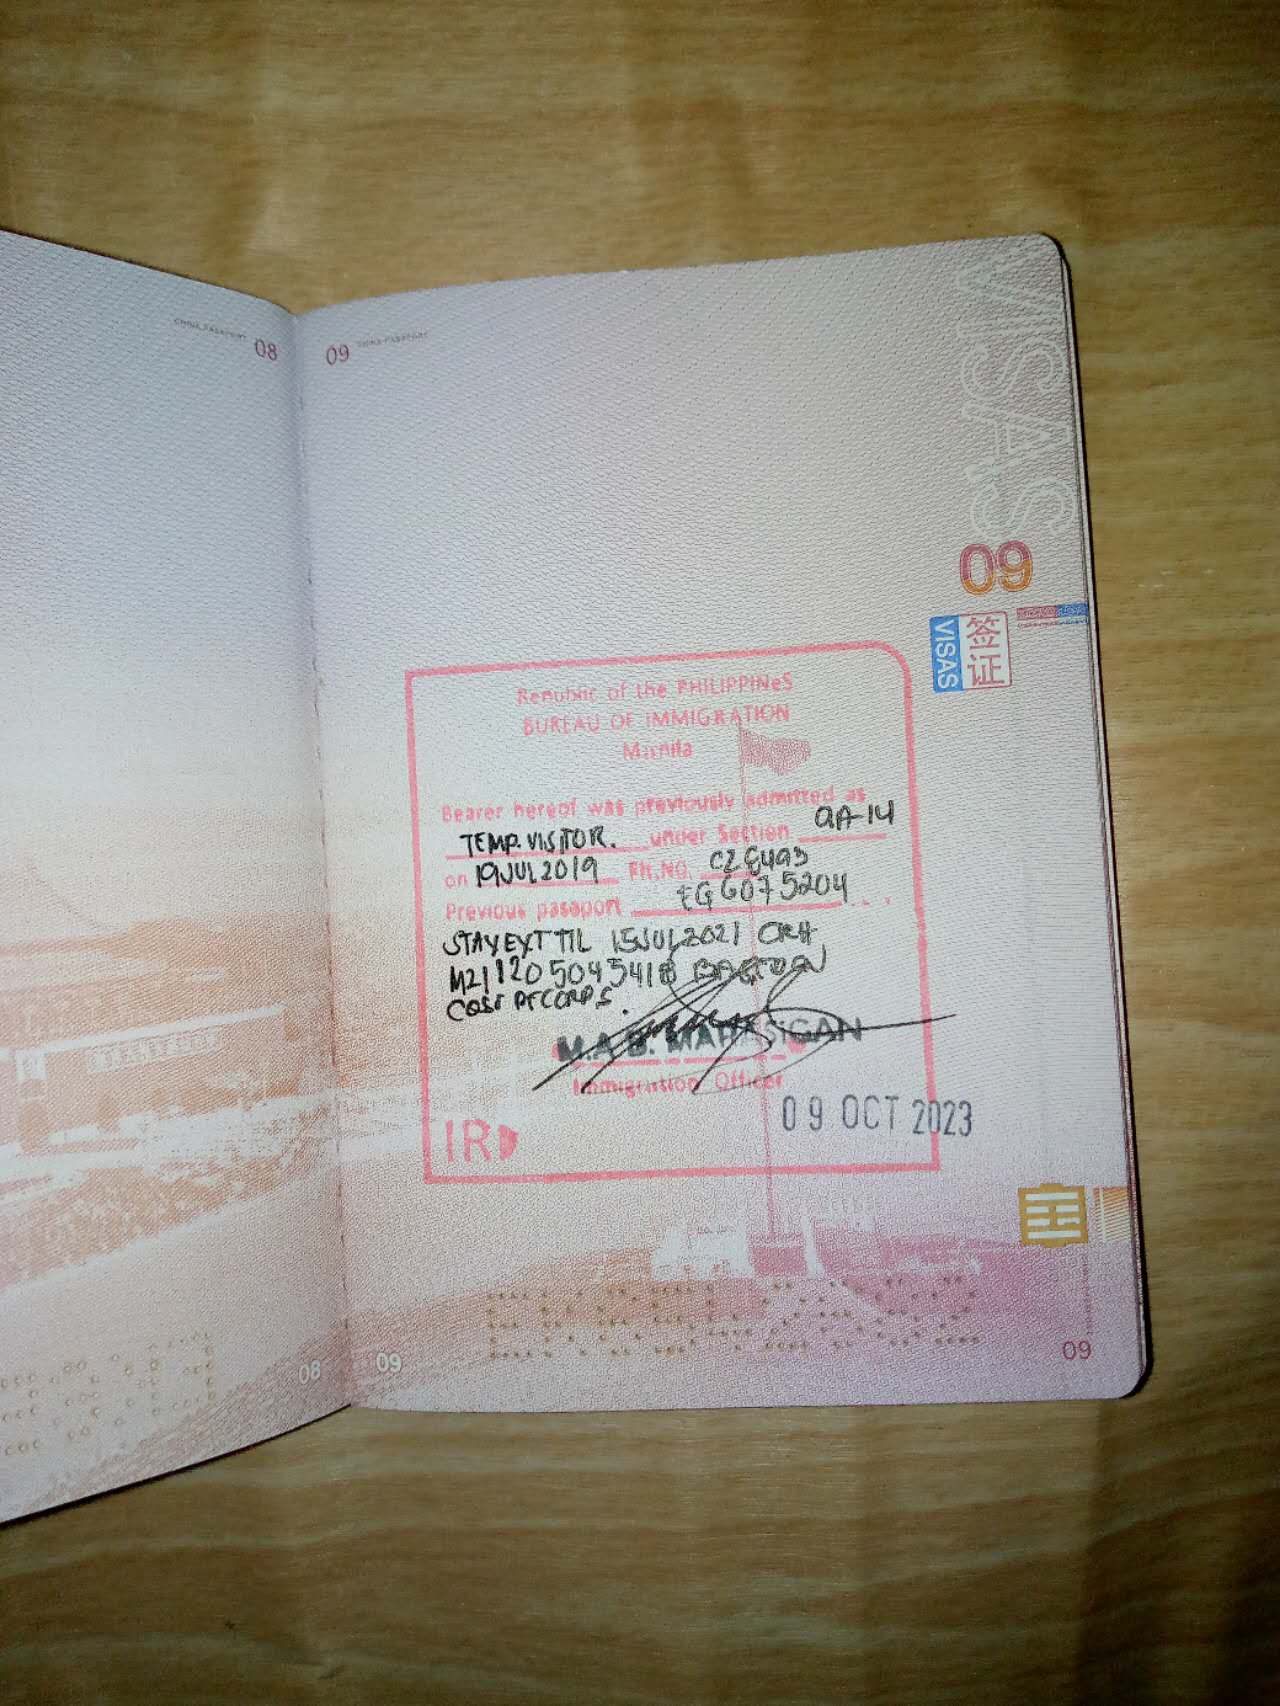 CHINA PASSPORT 08
09 CHINA PASSPORT
VISAS
09
VISAS 签证
Republic of the PHILIPPINeS
BUREAU OF IMMIGRATION
Manila
Bearer hereof was previously admitted as
TEMP. VISITOR. under Section 9A-14
on 19 JUL 2019 Flt. NO. CZ 8493
Previous passport EG6075204
STAY EXT TIL 15 JUL 2021 ORH
M21120504541B
M.A.B. MARASIGAN
Immigration Officer
09 OCT 2023
IRD
08
09
09